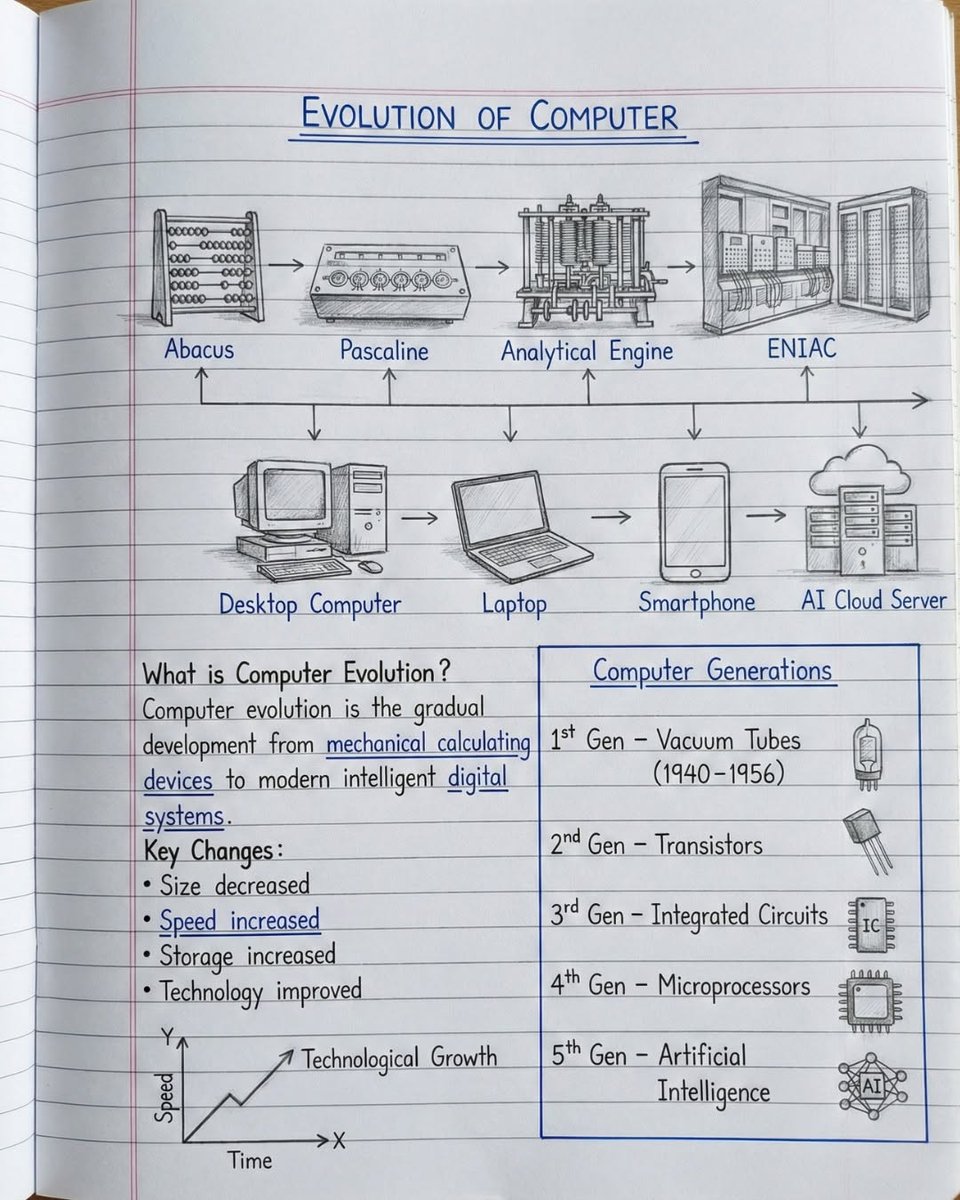 EVOLUTION OF COMPUTER
Abacus
Pascaline
Analytical Engine
ENIAC
Desktop Computer
Laptop
Smartphone
AI Cloud Server
What is Computer Evolution?
Computer evolution is the gradual
development from mechanical calculating
devices to modern intelligent digital
systems.
Key Changes:
• Size decreased
• Speed increased
• Storage increased
• Technology improved
Y
Speed
Technological Growth
X
Time
Computer Generations
1st Gen – Vacuum Tubes
(1940–1956)
2nd Gen – Transistors
3rd Gen – Integrated Circuits
IC
4th Gen – Microprocessors
5th Gen – Artificial
Intelligence
AI